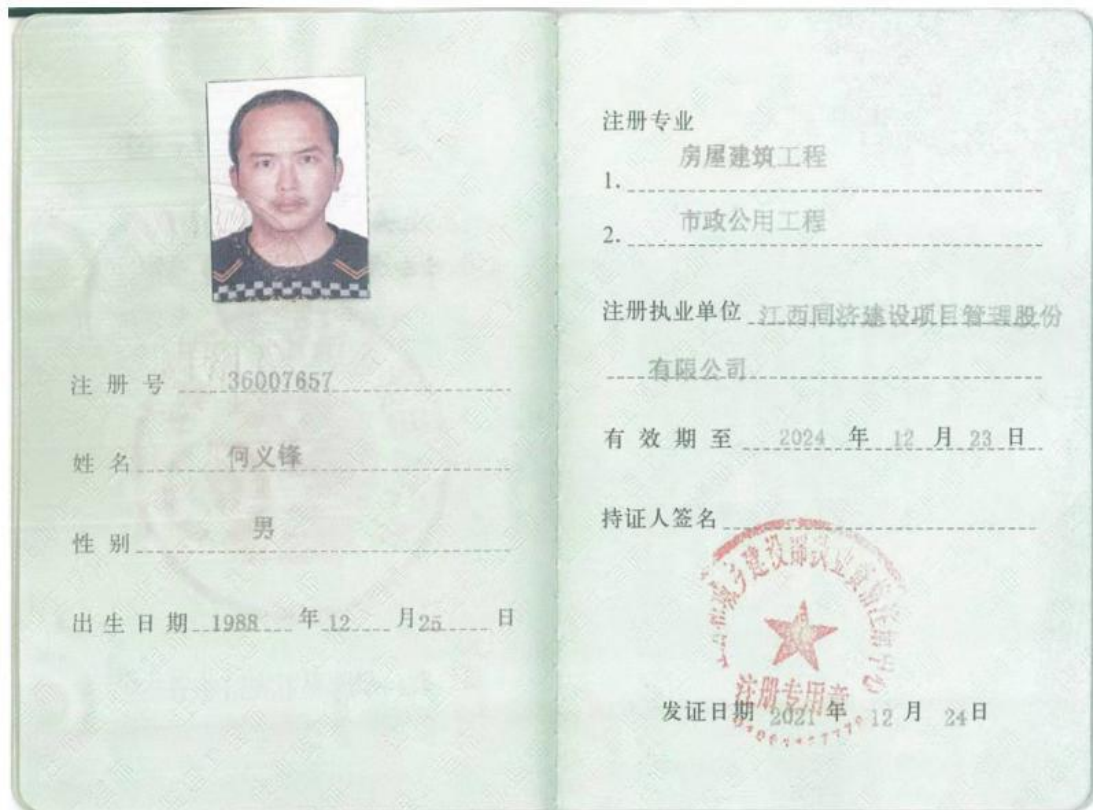 注册号 36007657
姓名 何义锋
性别 男
出生日期 1988 年 12 月 25 日
注册专业
1. 房屋建筑工程
2. 市政公用工程
注册执业单位 江西同济建设项目管理股份
有限公司
有效期至 2024 年 12 月 23 日
持证人签名
城乡建设部执业资格注册中心
注册专用章
发证日期 2021 年 12 月 24 日